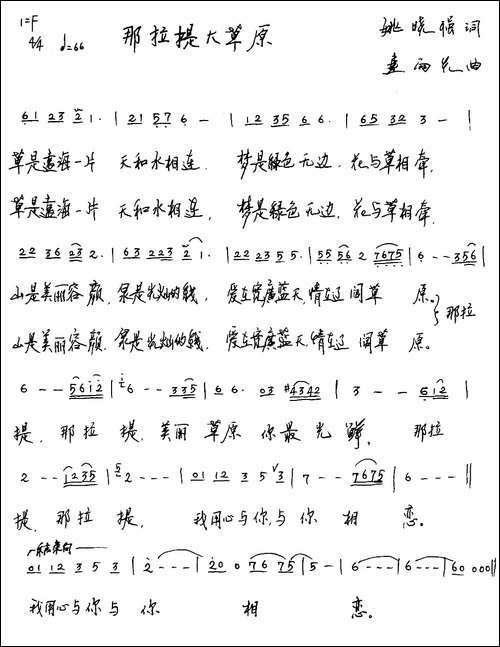 1=F
4/4 ♩=66
那拉提大草原
姚晓强 词
曲
61 23 2 1· | 21 57 6 - | 12 35 6 6· | 65 32 3 - |
草是蓝海一片 天和水相连. 梦是绿色无边. 花与草相牵.
草是蓝海一片 天和水相连, 梦是绿色无边, 花与草相牵.
22 36 23 2· | 63 223 2 1· | 22 23 5 5· | 55 56 2 7675 | 6 - - 356 |
山是美丽容颜, 泉是 的钱, 爱在宽广蓝天, 情在辽阔草 原。 那拉
山是美丽容颜. 泉是 的钱. 爱在宽广蓝天, 情在辽阔草 原。
6 - - 5612 | 6 - - 335 | 6 6· 03 #4342 | 3 - - 612 |
提, 那拉 提, 美丽 草原 你最 光鲜, 那拉
2 - - 1235 | 2 - - - | 01 12 3 5 3 | 7 - - 7675 | 6 - - - ‖
提, 那拉 提, 我用心与你,与 你 相 恋。
01 12 3 5 3 | 2 - - - | 20 0 76 75 | 5 - | 6 - - - | 6 - - - | 60 000 ‖
我用心与你与 你 相 恋。